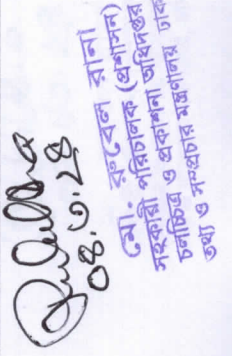 ০৪.৩.২৪
মো. রুবেল রানা
সহকারী পরিচালক (প্রশাসন)
চলচ্চিত্র ও প্রকাশনা অধিদপ্তর
তথ্য ও সম্প্রচার মন্ত্রণালয়